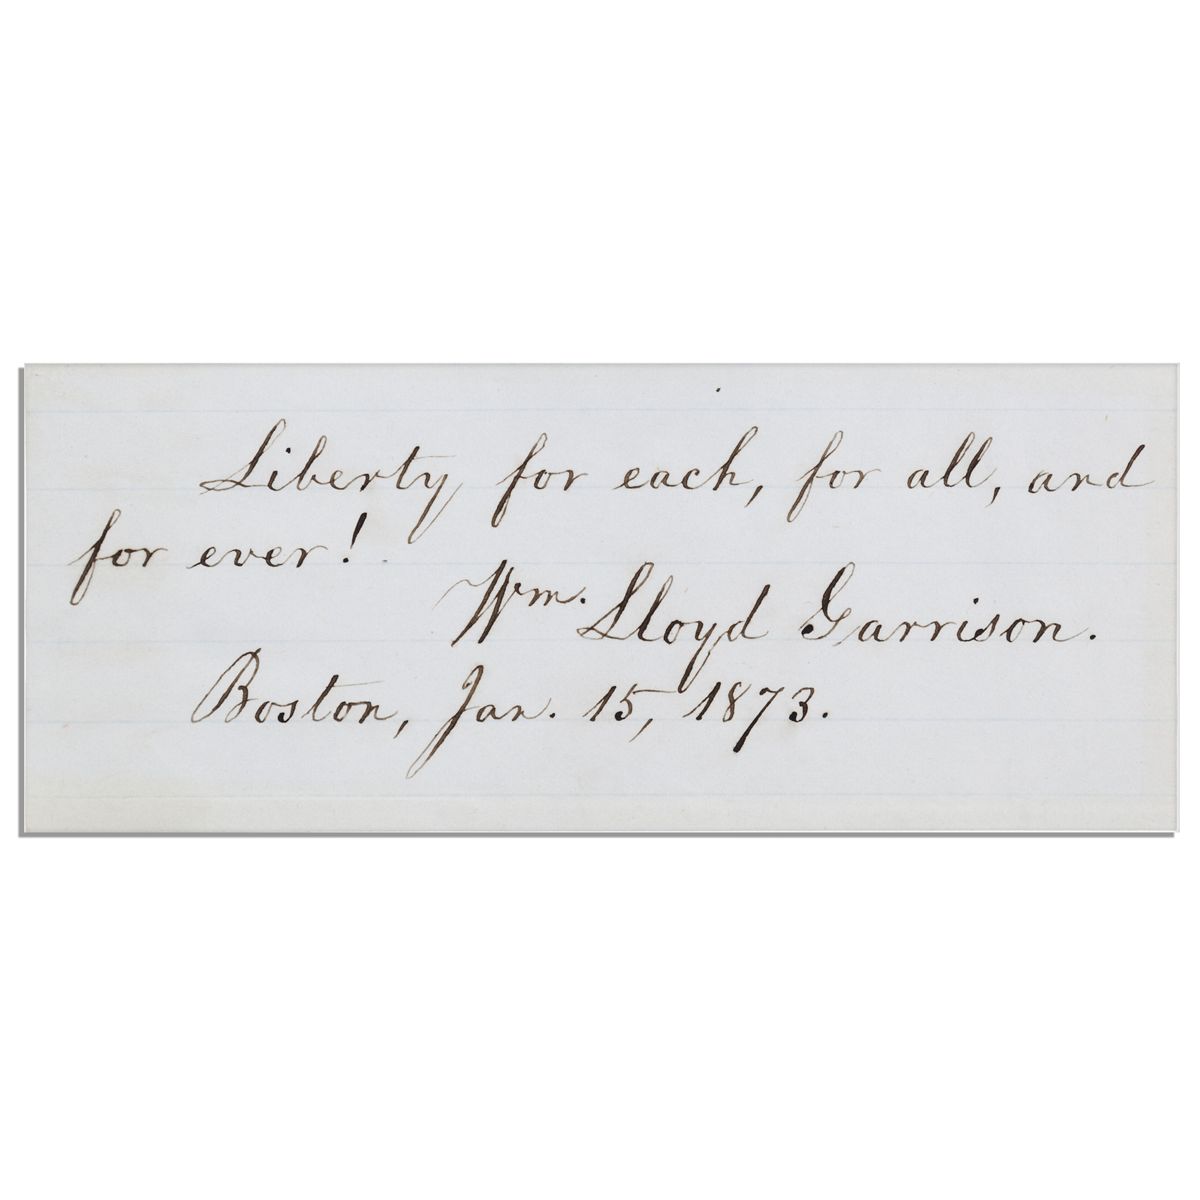 Liberty for each, for all, and
for ever!
Wm. Lloyd Garrison.
Boston, Jan. 15, 1873.